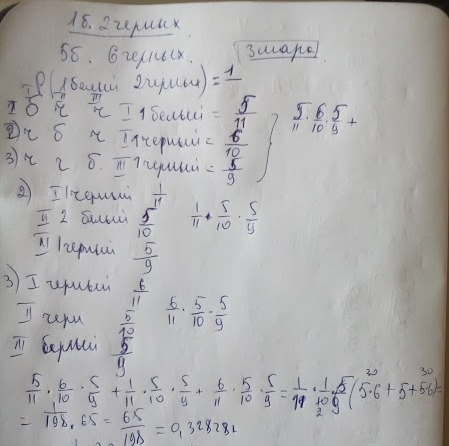 1б. 2 черных
5б. 6 черных. 3 шара
P(1 белый 2 черных) = 1
I II III
1 б ч ч I 1 белый = 5/11
2) ч б ч II 1 черный = 6/10
3) ч ч б. III 1 черный = 5/9
5/11 · 6/10 · 5/9 +
2) I 1 черный 1/11
II 2 белый 5/10 1/11 · 5/10 · 5/9
III 1 черный 5/9
3) I черный 6/11
II черн 5/10 6/11 · 5/10 · 5/9
III белый 5/9
5/11 · 6/10 · 5/9 + 1/11 · 5/10 · 5/9 + 6/11 · 5/10 · 5/9 = 1/11 · 1/10 · 5/9 (5·6 + 5 + 5·6) =
= 1/198 · 65 = 65/198 = 0,32828